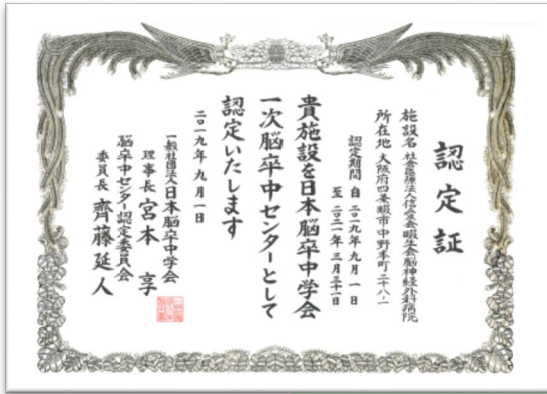 認定証
施設名 社会医療法人信愛会畷生会脳神経外科病院
所在地 大阪府四条畷市中野本町二十八-一
認定期間 自 二〇一九年 九月 一日
至 二〇二一年 三月三十一日
貴施設を日本脳卒中学会
一次脳卒中センターとして
認定いたします
二〇一九年 九月一日
一般社団法人日本脳卒中学会
理事長 宮本 享
脳卒中センター認定委員会
委員長 齊藤延人